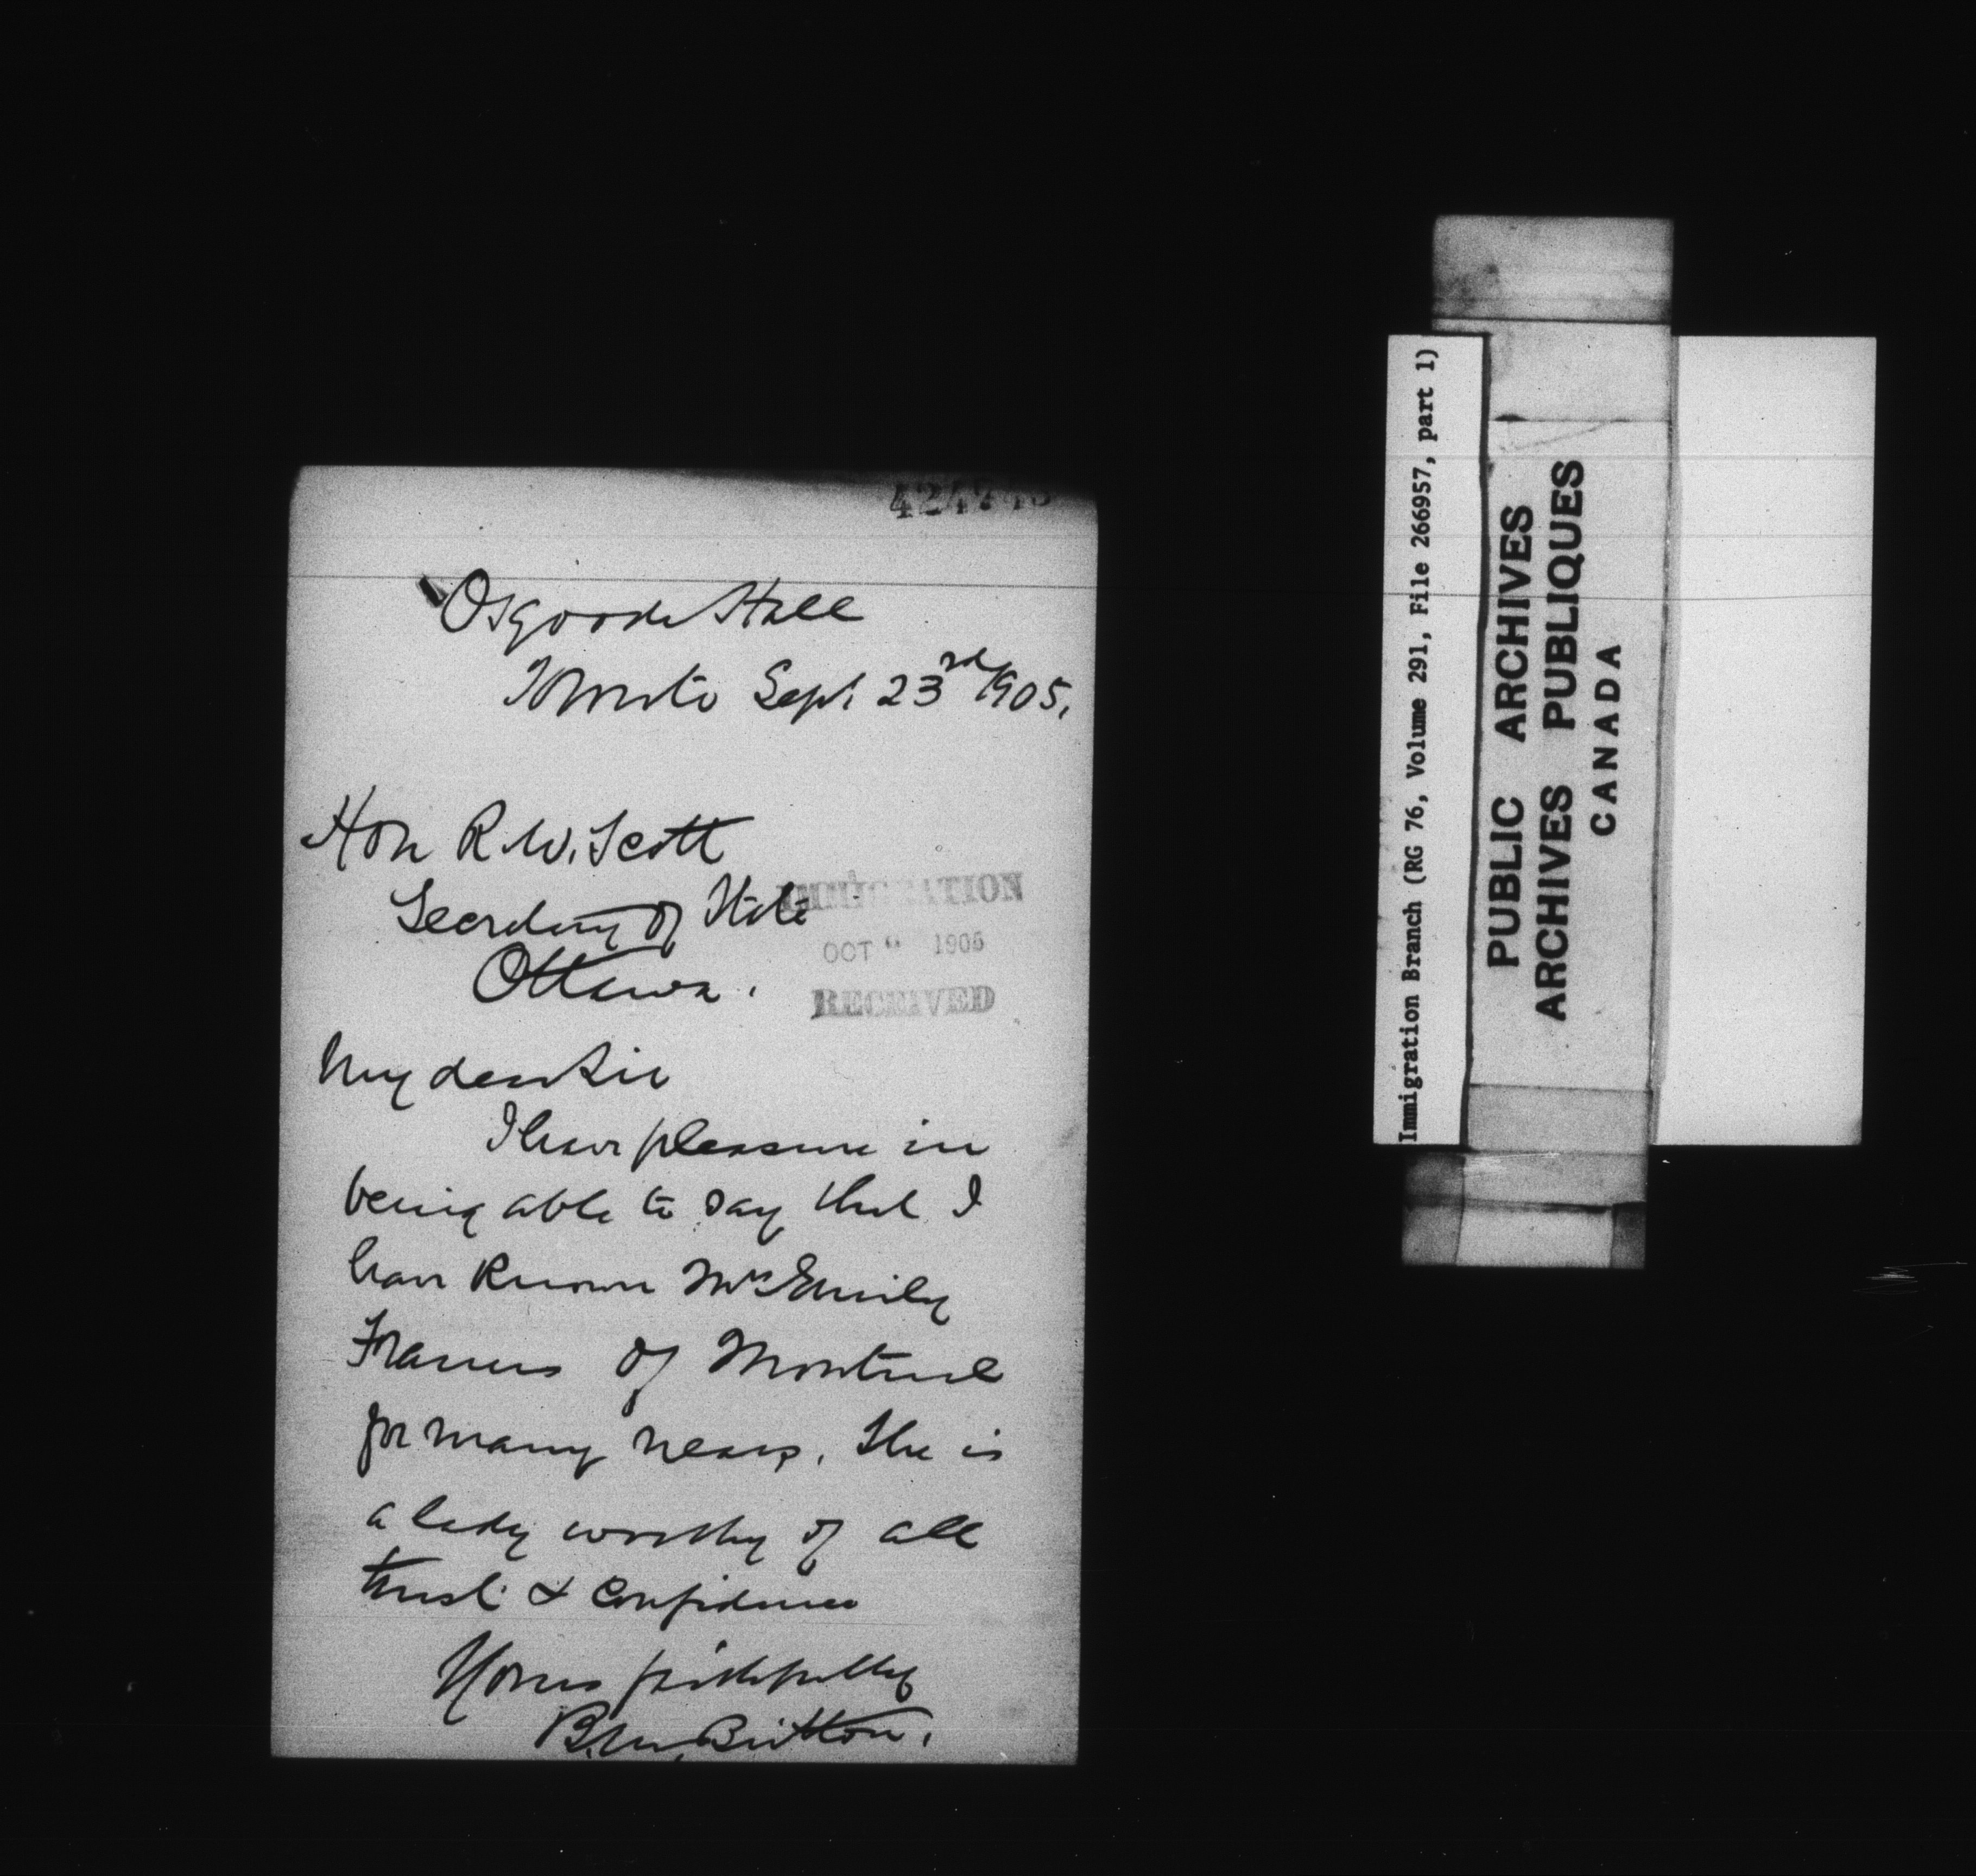 Osgoode Hall
Toronto Sept 23rd 1905.
Hon R. W. Scott
Secretary of State
Ottawa.
IMMIGRATION
OCT 1905
RECEIVED
My dear Sir
I have pleasure in
being able to say that I
have known Mrs Emily
Francis of Montreal
for many years. She is
a lady worthy of all
trust & confidence
Yours faithfully
B. M. Britton.
Immigration Branch (RG 76, Volume 291, File 266957, part 1)
PUBLIC ARCHIVES
ARCHIVES PUBLIQUES
CANADA